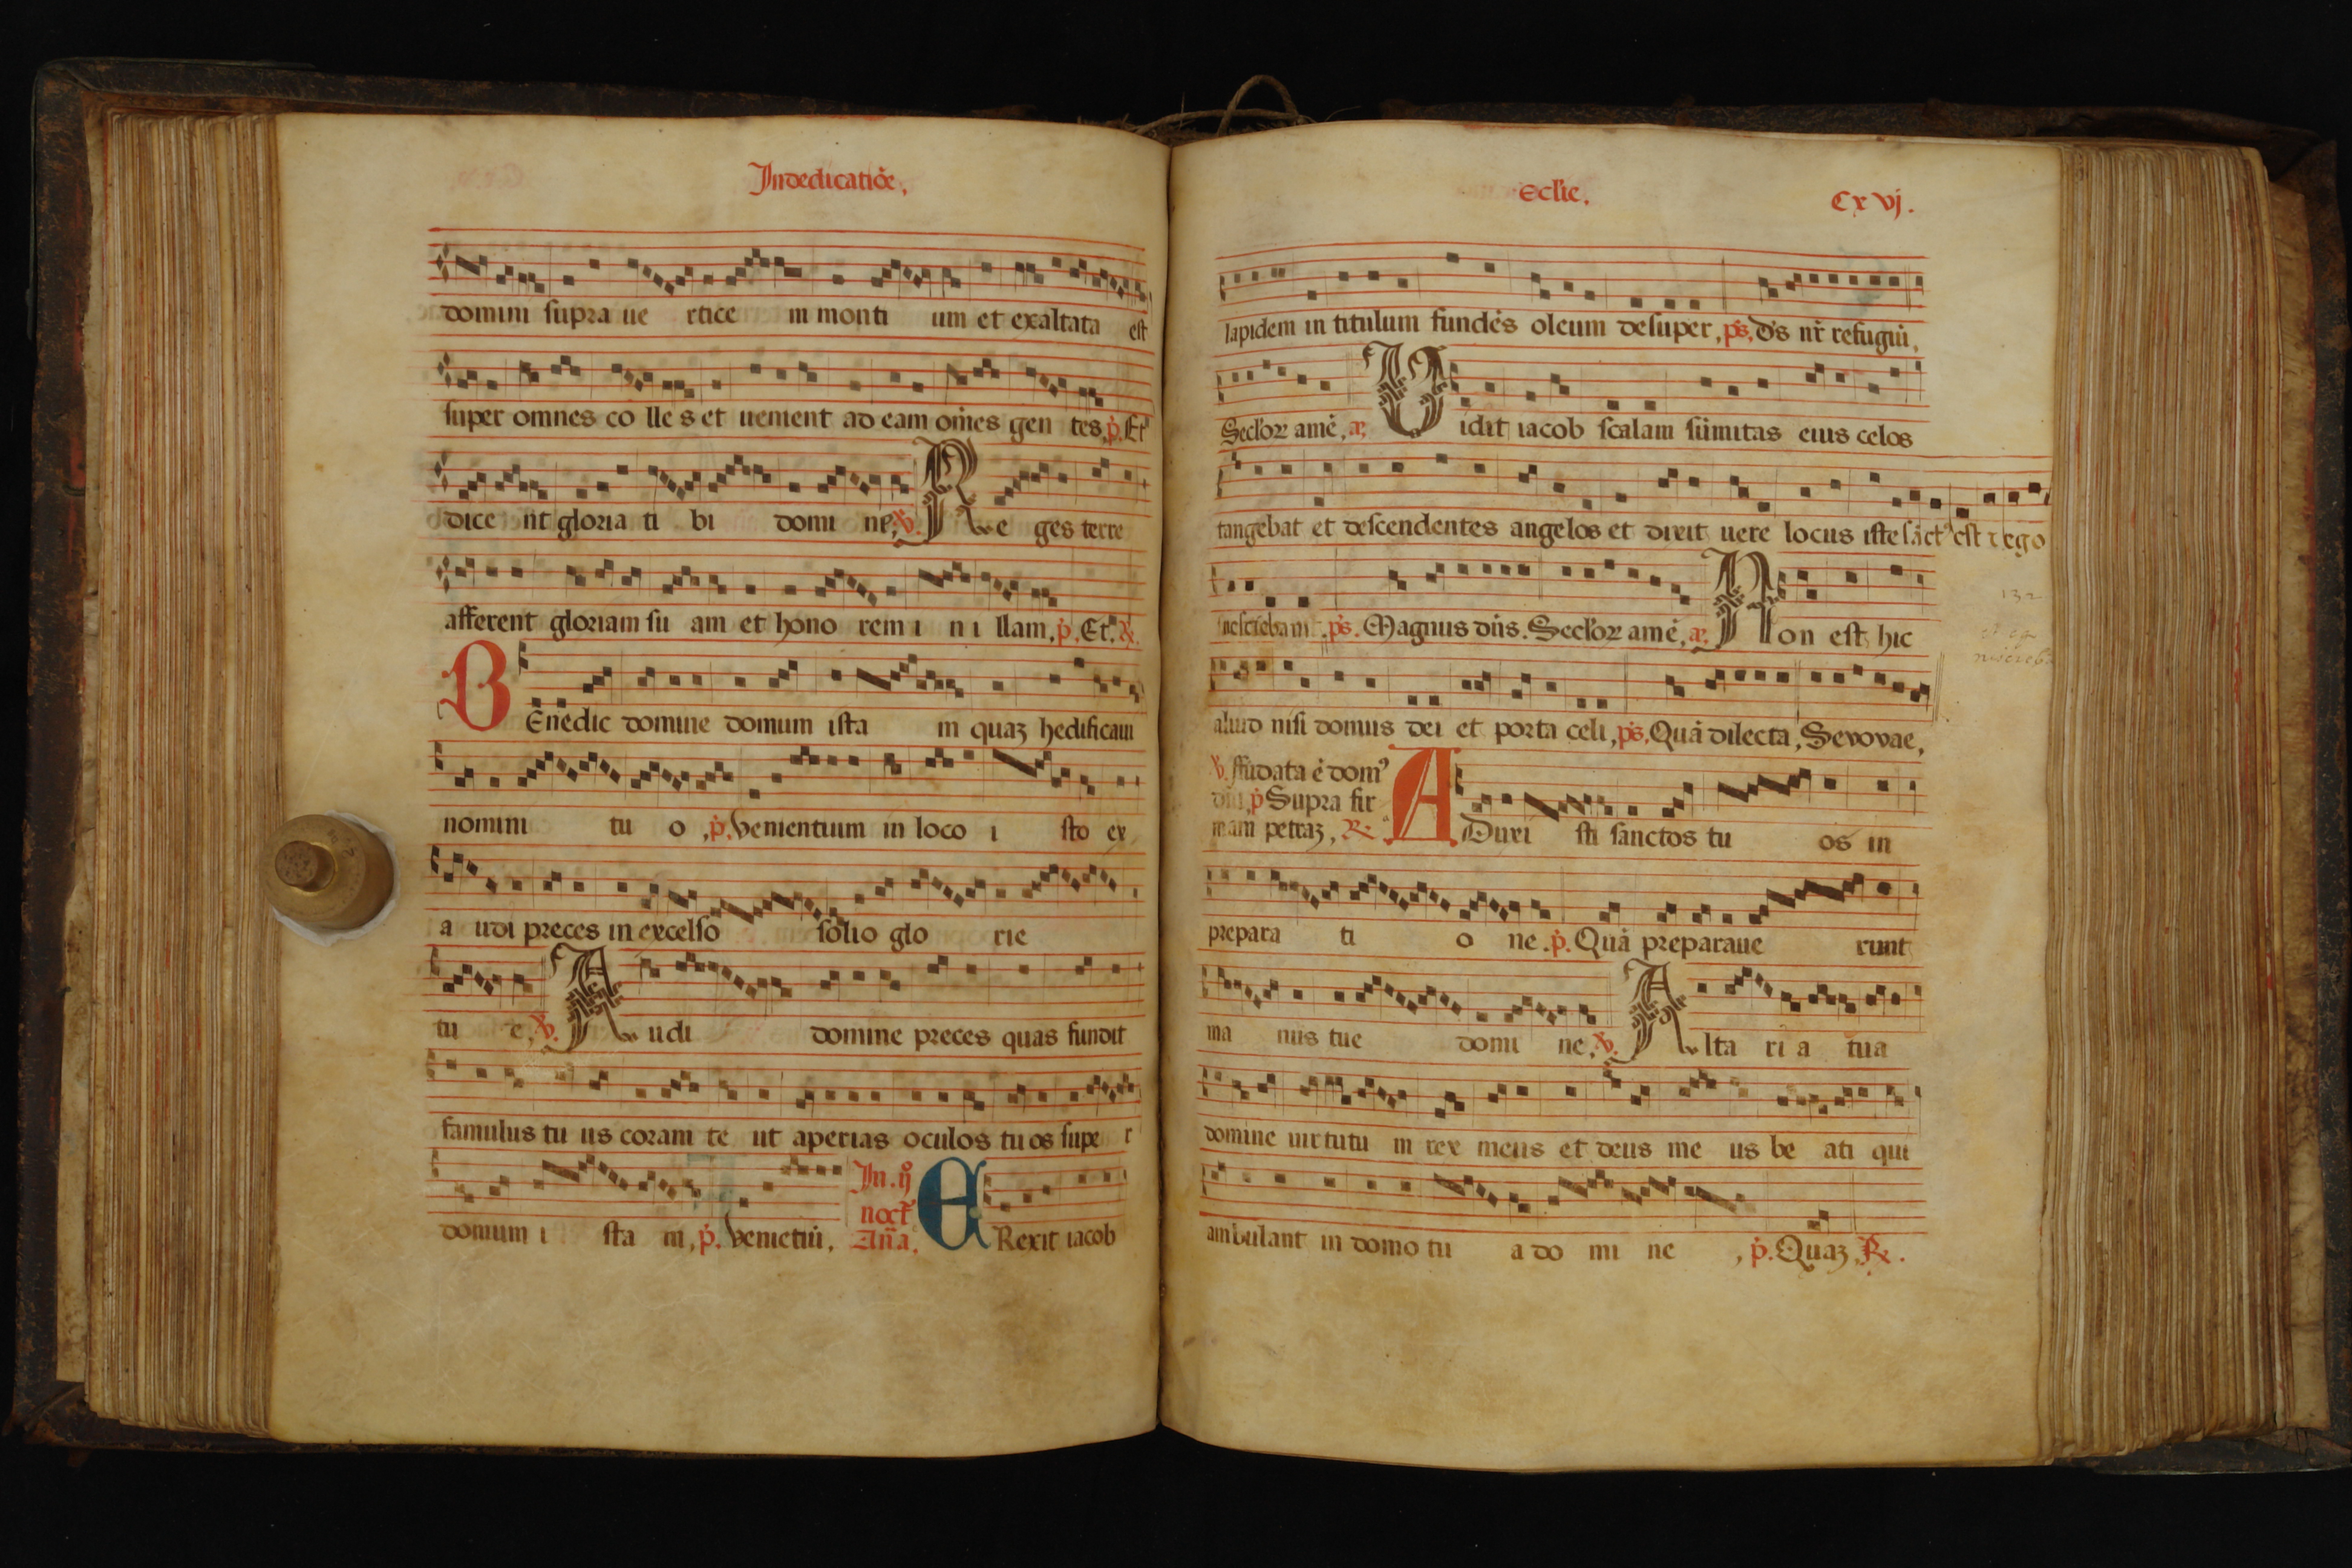 Indedicatiõe.
domini supra ue rtice m monti um et exaltata est
super omnes co lle s et uenient ad eam om̃es gen tes, p̃. Et
dice nt gloria ti bi domi ne, ℣. Re ges terre
afferent gloriam su am et hono rem i n i llam, p̃. Et. ℟.
BEnedic domine domum ista m quaꝫ hedificaui
nomini tu o, p̃. Venientium in loco i sto ex
a udi preces in excelso solio glo rie
tu e, ℣. Audi domine preces quas fundit
famulus tu us coram te ut aperias oculos tu os supe r
domum i sta m, p̃. Venietiũ,
In. ij̊
noct̃
Añа.
ERexit iacob
Eclie.
Cxvj.
lapidem in titulum fundẽs oleum desuper, pŝ. D̃s nr̃ refugiũ,
Seclor̃ amẽ, añ. Uidit iacob scalam sũmitas eius celos
tangebat et descendentes angelos et dixit uere locus iste sãctꝰ est ⁊ ego
nesciebam. pŝ. Magnus dñs. Seclor̃ amẽ, añ. Non est hic
aliud nisi domus dei et porta celi, pŝ. Quã dilecta, Sevovae,
℣. ffũdata ẽ domꝰ
dñi, p̃ Supra fir
mam petraꝫ, ℟.
ADuxi sti sanctos tu os in
prepara ti o ne. p̃. Quã preparaue runt
ma nus tue domi ne. ℣. Alta ri a tua
domine uirtutu m rex meus et deus me us be ati qui
ambulant in domo tu a do mi ne, p̃. Quaꝫ, ℟.